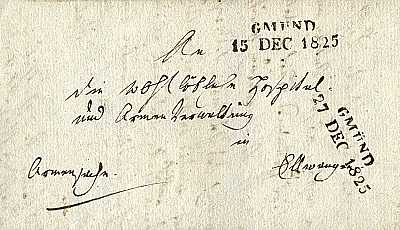 GMÜND
15 DEC 1825
An
die wohllöbliche Hospital
und Armen Verwaltung
in
Ellwangen
Armensache.
GMÜND
27 DEC 1825